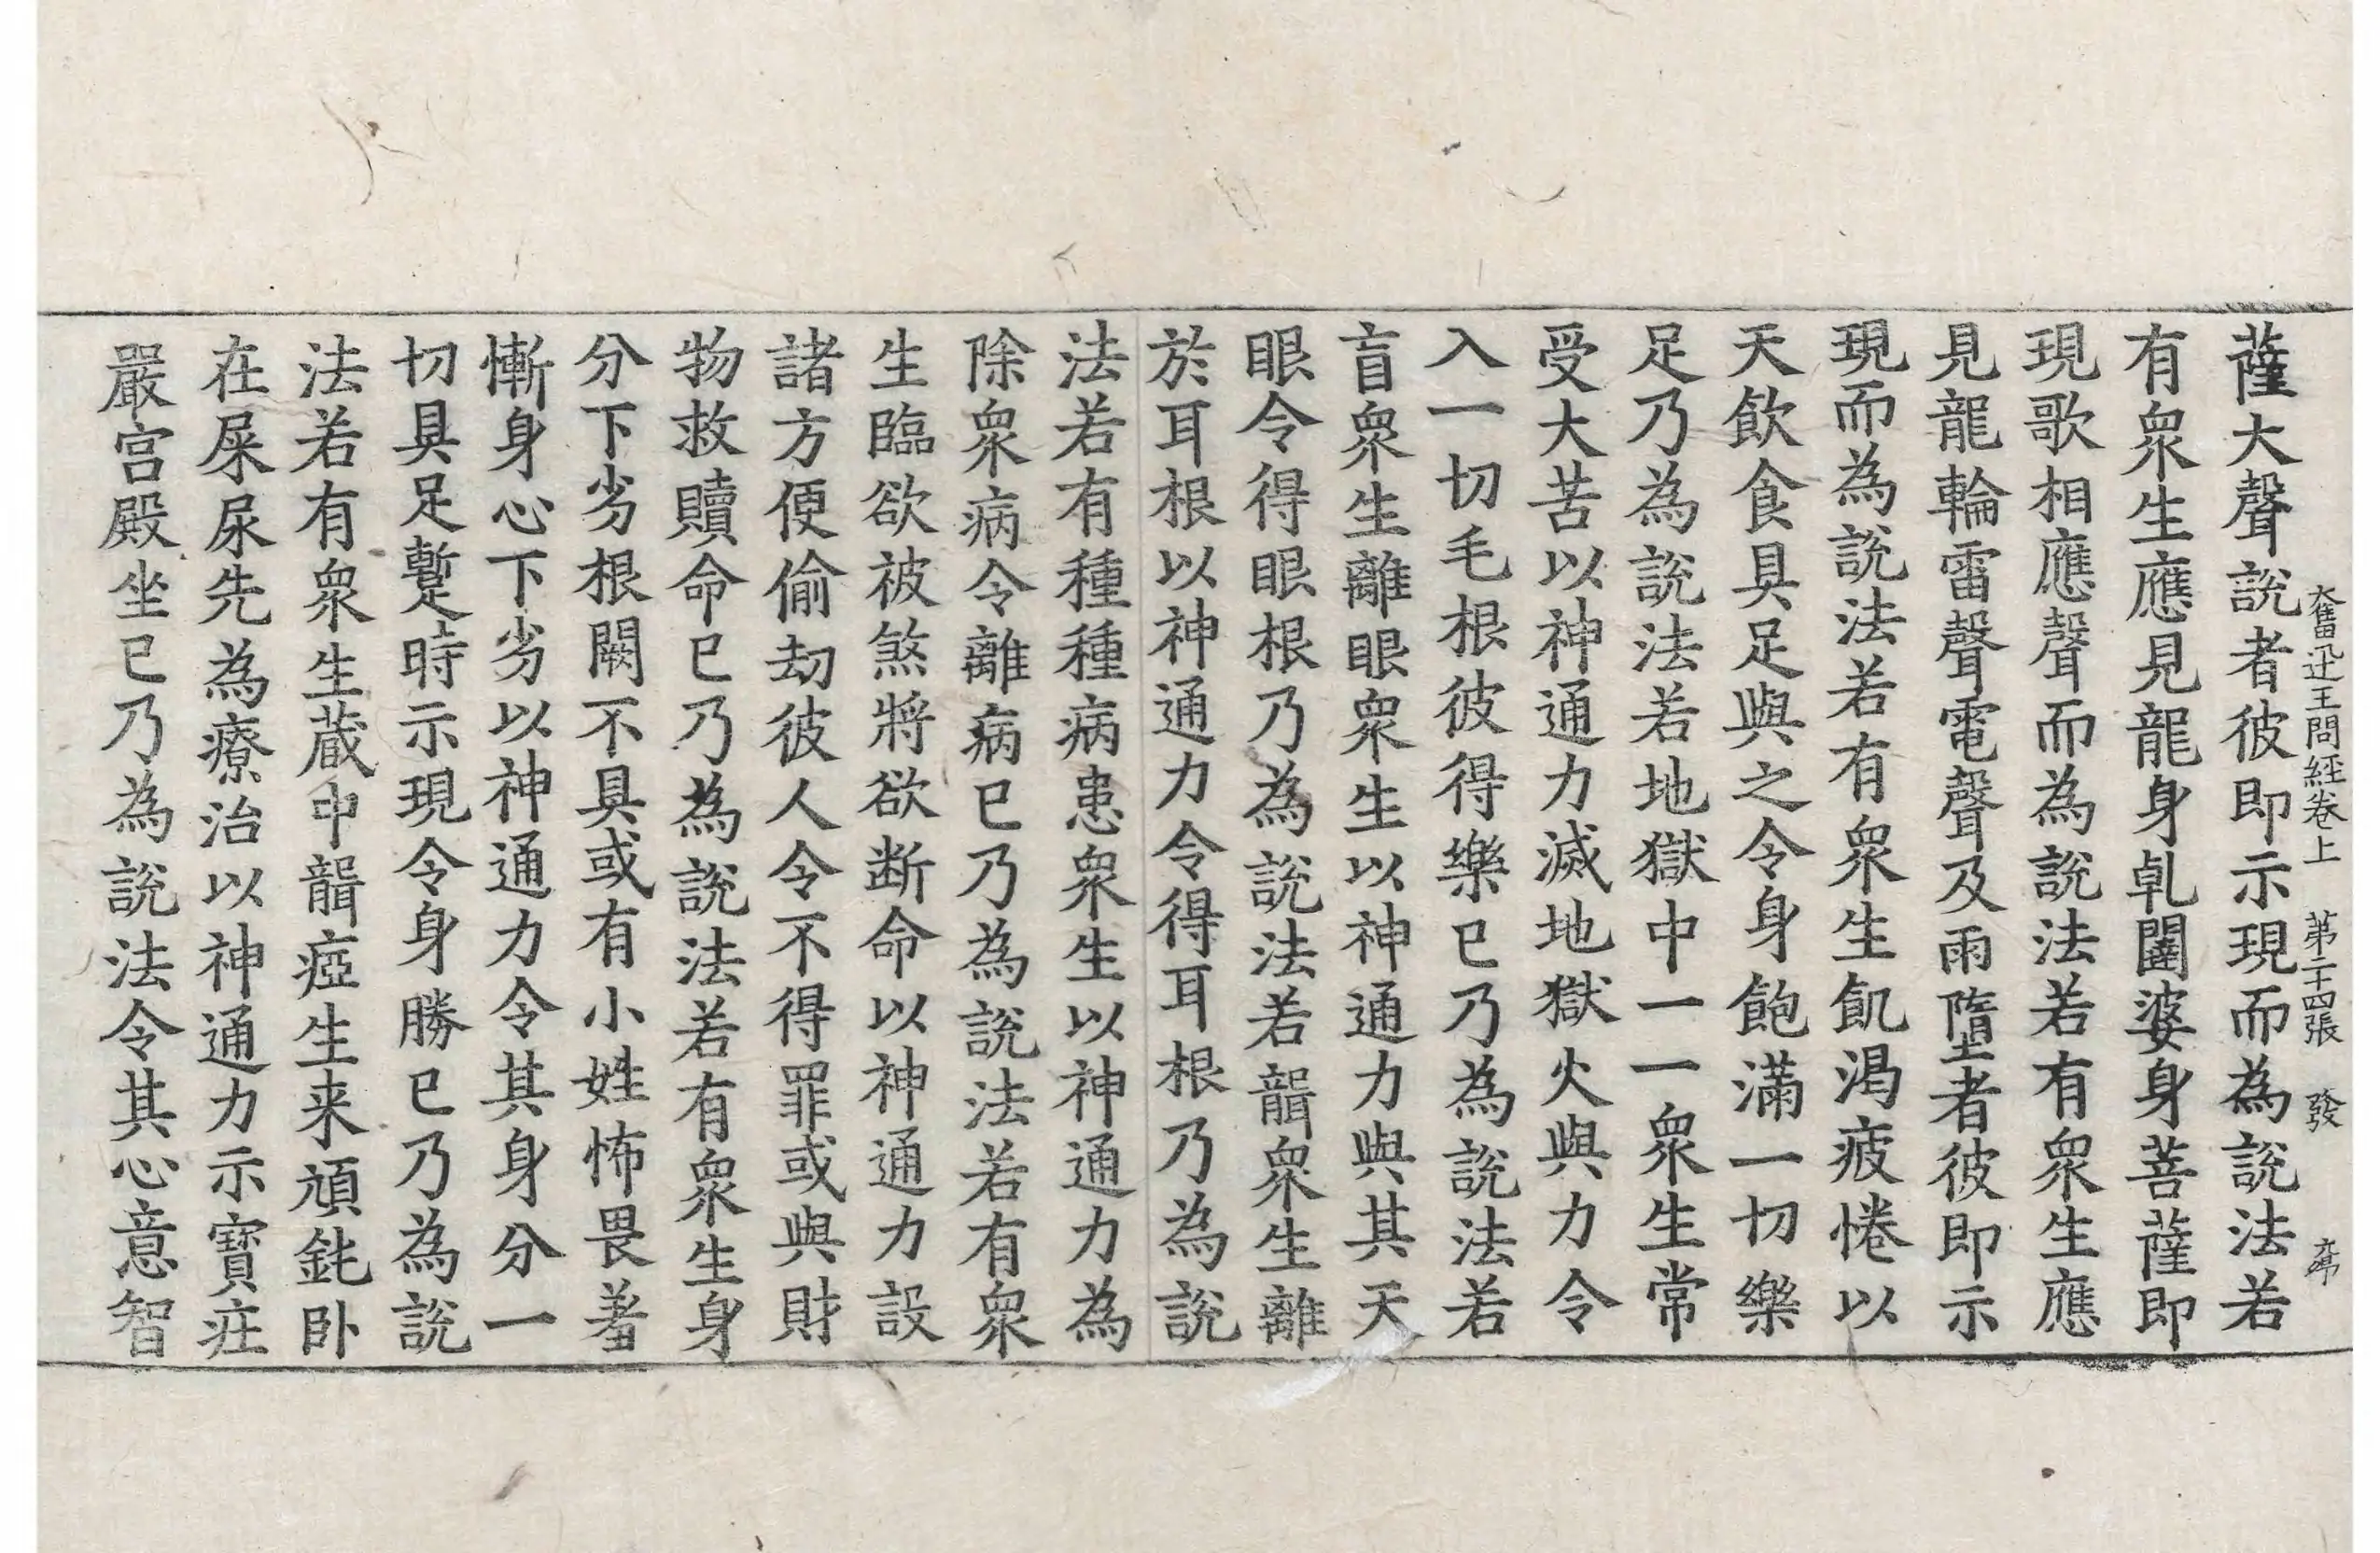 奮迅王問經卷上　第二十四張　發
薩大聲說者彼即示現而為說法若
有衆生應見龍身乹闥婆身菩薩即
現歌相應聲而為說法若有衆生應
見龍輪雷聲電聲及雨墮者彼即示
現而為說法若有衆生飢渴疲惓以
天飲食具足與之令身飽滿一切樂
足乃為說法若地獄中一一衆生常
受大苦以神通力滅地獄火與力令
入一切毛根彼得樂已乃為說法若
盲衆生離眼衆生以神通力與其天
眼令得眼根乃為說法若聾衆生離
於耳根以神通力令得耳根乃為說
法若有種種病患衆生以神通力為
除衆病令離病已乃為說法若有衆
生臨欲被煞將欲断命以神通力設
諸方便偷劫彼人令不得罪或與財
物救贖命已乃為說法若有衆生身
分下劣根闕不具或有小姓怖畏羞
慚身心下劣以神通力令其身分一
切具足蹔時示現令身勝已乃為說
法若有衆生蔵中聾瘂生来頑鈍卧
在屎尿先為療治以神通力示寶莊
嚴宮殿坐已乃為說法令其心意智